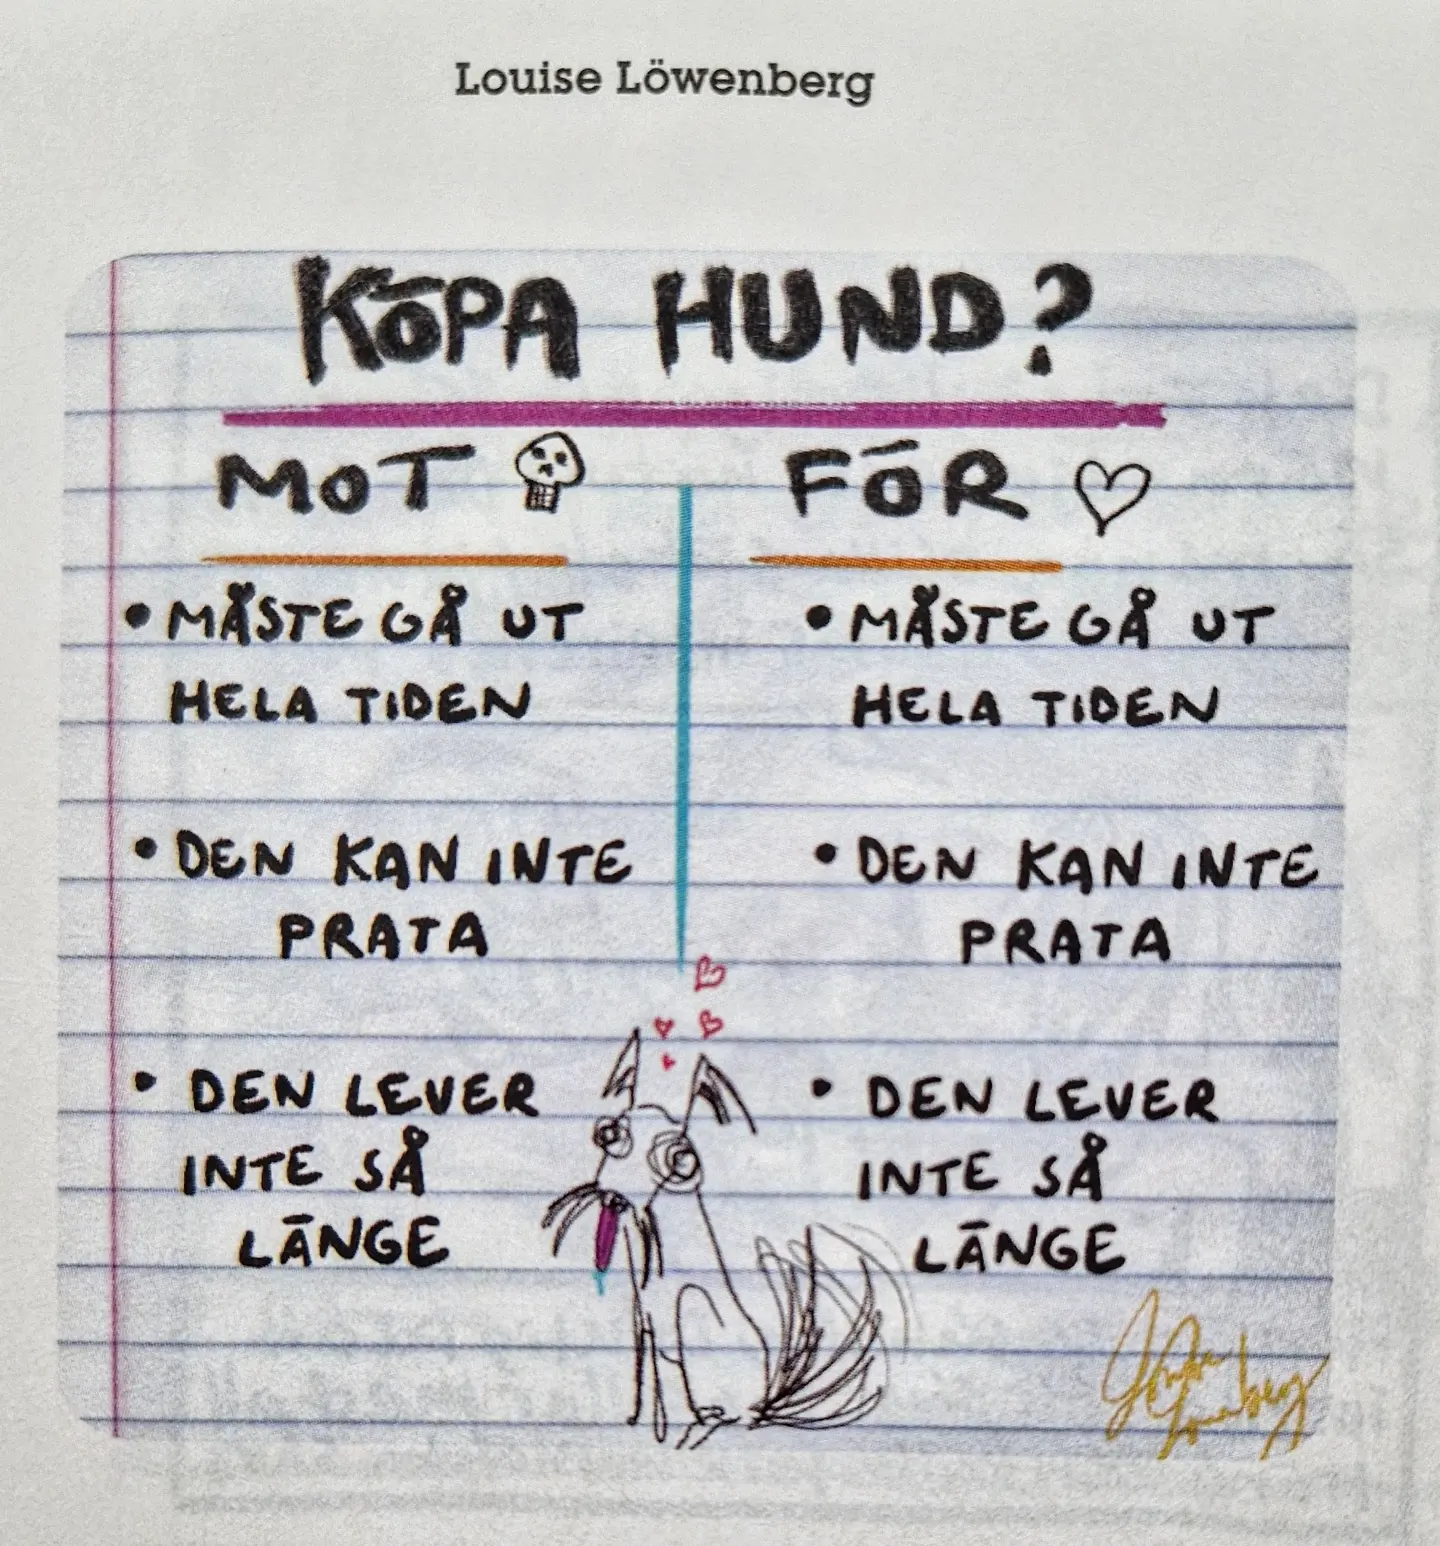 Louise Löwenberg
KÖPA HUND?
MOT
• MÅSTE GÅ UT
HELA TIDEN
• DEN KAN INTE
PRATA
• DEN LEVER
INTE SÅ
LÄNGE
FÖR
• MÅSTE GÅ UT
HELA TIDEN
• DEN KAN INTE
PRATA
• DEN LEVER
INTE SÅ
LÄNGE